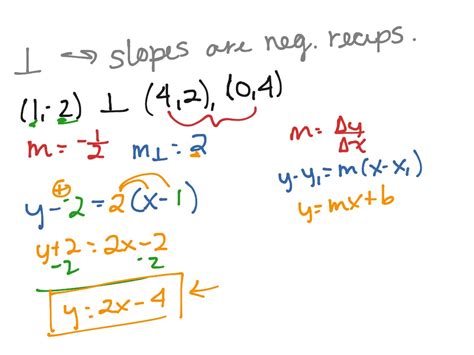 ⊥ ↔ slopes are neg. recips.
(1,-2) ⊥ (4,2), (0,4)
m = -1/2 m⊥ = 2
m = Δy/Δx
y - y₁ = m(x - x₁)
y = mx + b
y - -2 = 2(x - 1)
+
y + 2 = 2x - 2
-2 -2
y = 2x - 4 ←